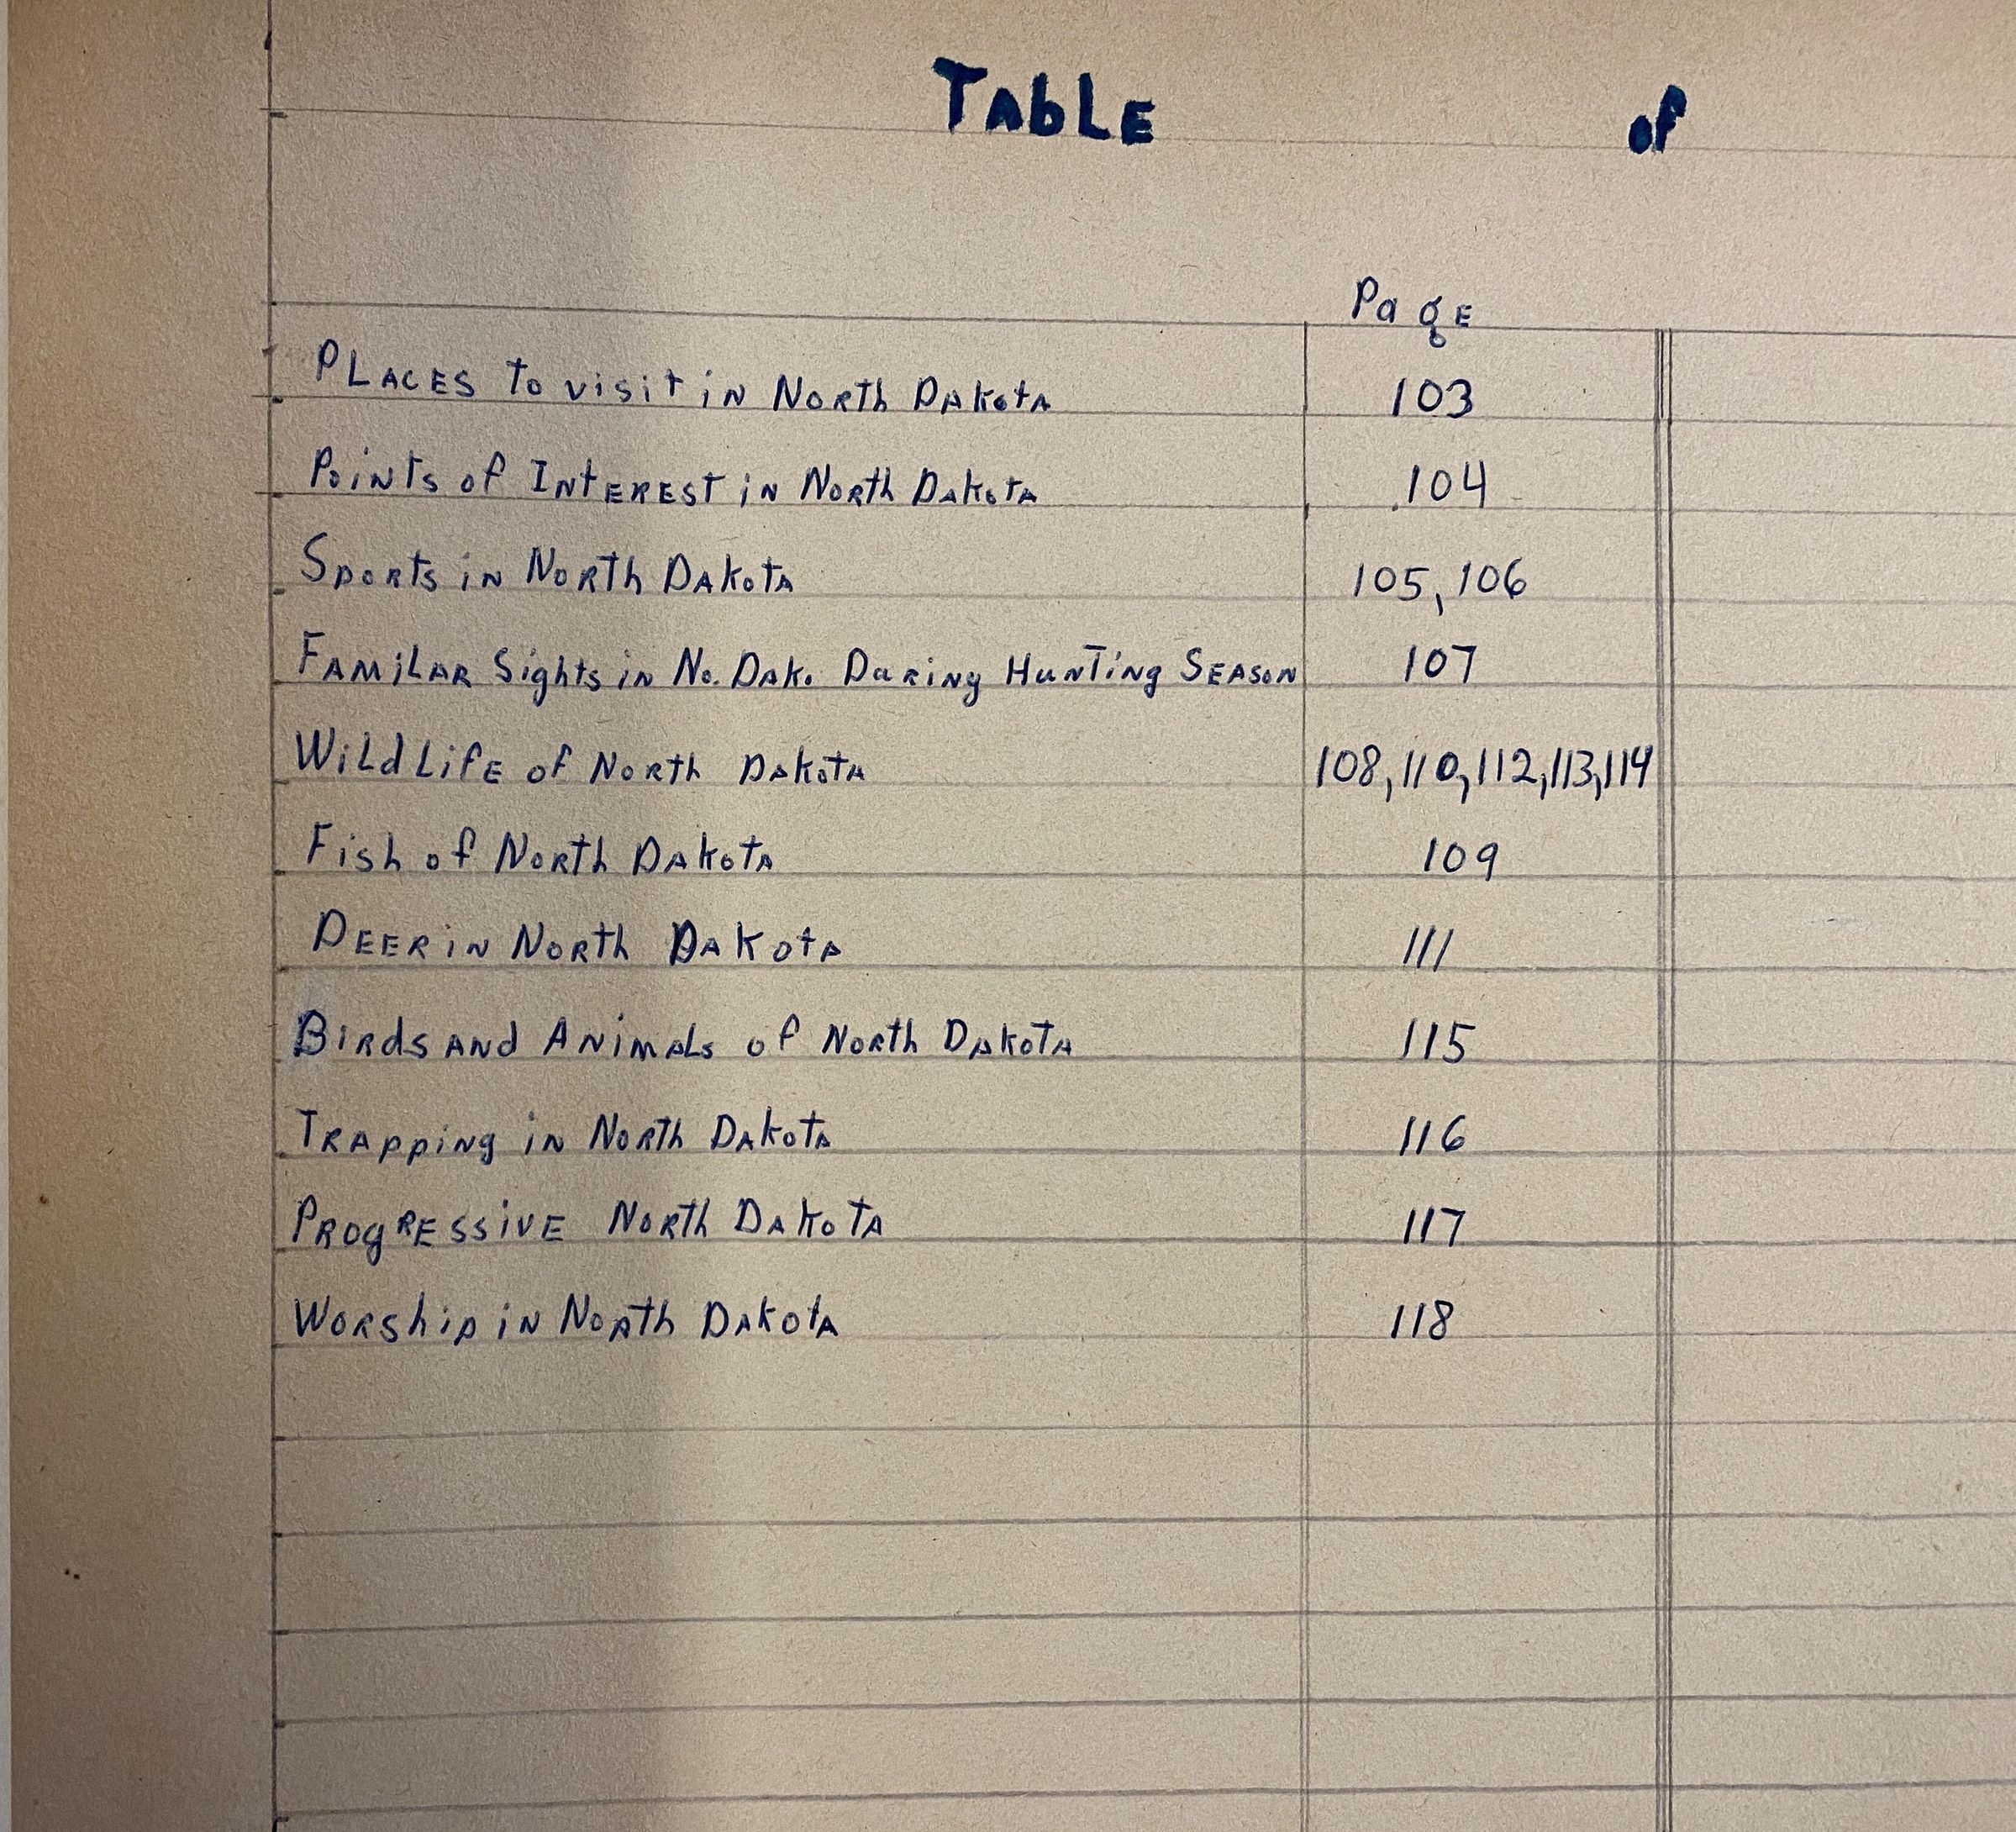 Table of
Page
Places to visit in North Dakota 103
Points of Interest in North Dakota 104
Sports in North Dakota 105, 106
Familar Sights in No. Dak. During Hunting Season 107
Wild Life of North Dakota 108, 110, 112, 113, 114
Fish of North Dakota 109
Deer in North Dakota 111
Birds and Animals of North Dakota 115
Trapping in North Dakota 116
Progressive North Dakota 117
Worship in North Dakota 118